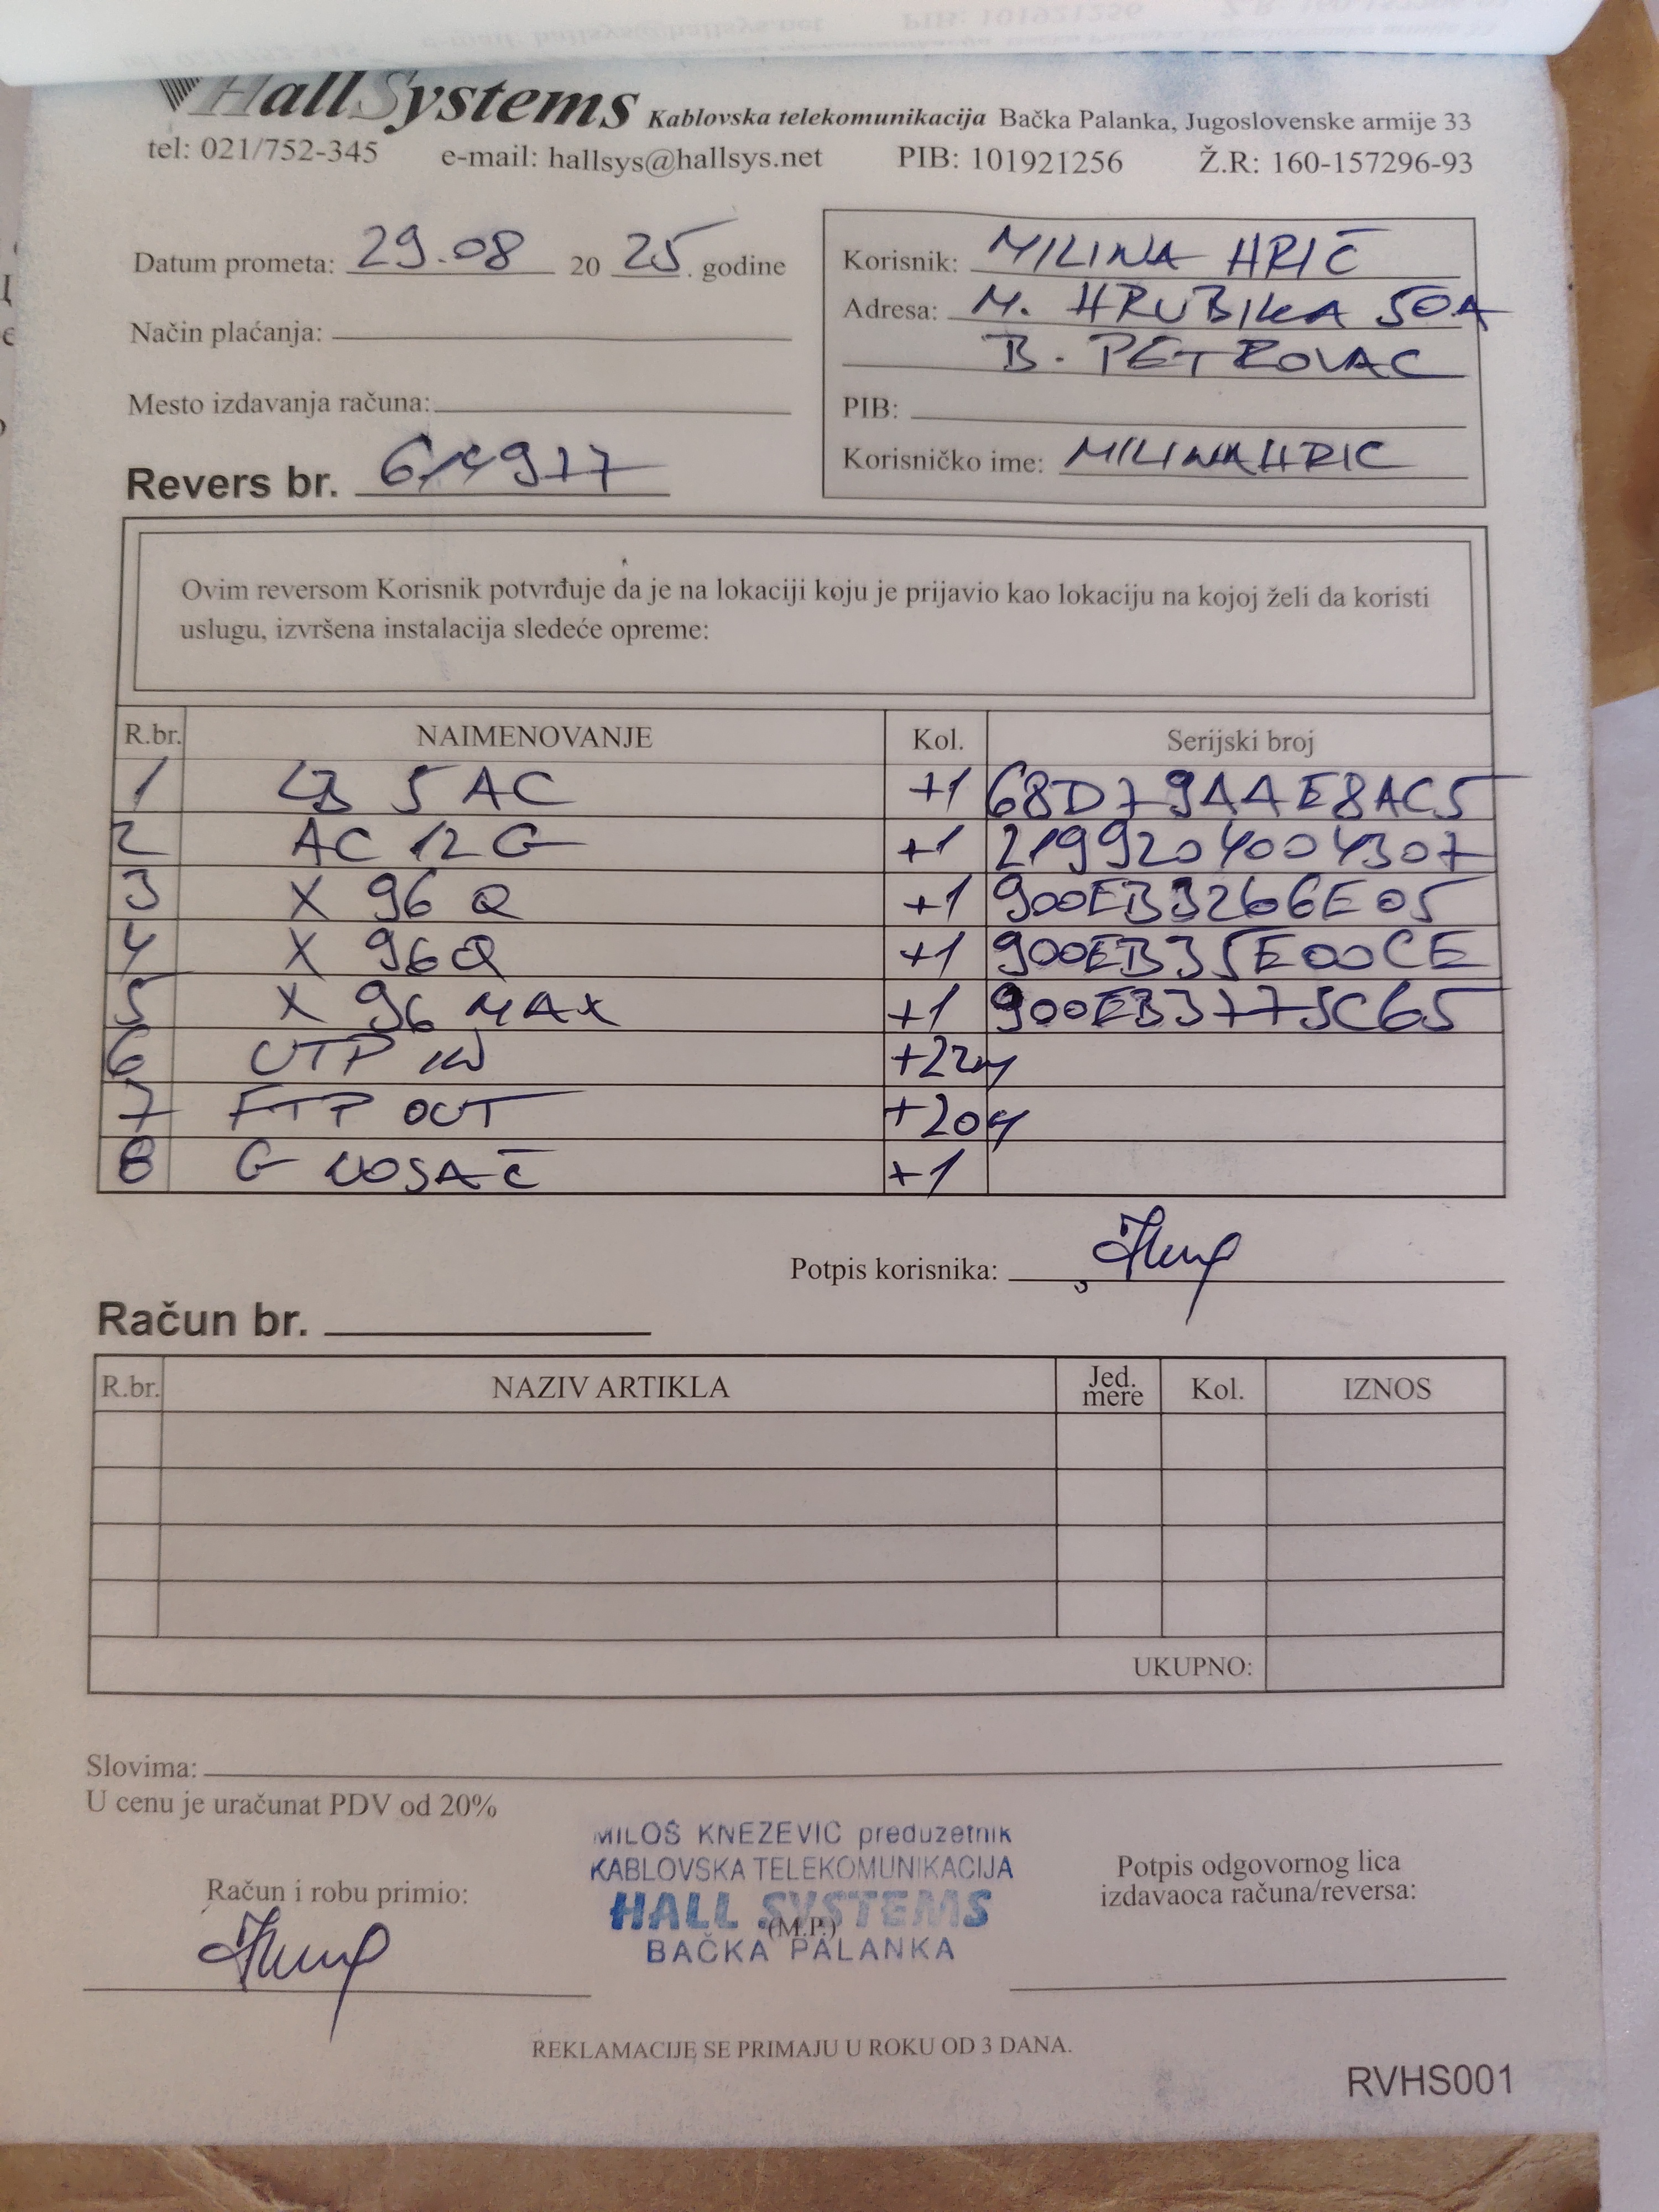 HallSystems Kablovska telekomunikacija Bačka Palanka, Jugoslovenske armije 33
tel: 021/752-345 e-mail: hallsys@hallsys.net PIB: 101921256 Ž.R: 160-157296-93
Datum prometa: 29.08 20 25. godine
Način plaćanja:
Mesto izdavanja računa:
Revers br. 614977
Korisnik: MILINA HRIČ
Adresa: M. HRUBIKA 50A
B. PETROVAC
PIB:
Korisničko ime: MILINAHRIC
Ovim reversom Korisnik potvrđuje da je na lokaciji koju je prijavio kao lokaciju na kojoj želi da koristi
uslugu, izvršena instalacija sledeće opreme:
R.br. NAIMENOVANJE Kol. Serijski broj
1 LB 5 AC +1 68D79AAE8AC5
2 AC 12 G +1 2199204004307
3 X 96 Q +1 900EB3266E05
4 X 96 Q +1 900EB35E00CE
5 X 96 MAX +1 900EB3775C65
6 UTP IN +22m
7 FTP OUT +20m
8 G NOSAČ +1
Potpis korisnika:
Račun br.
R.br. NAZIV ARTIKLA Jed. mere Kol. IZNOS
UKUPNO:
Slovima:
U cenu je uračunat PDV od 20%
Račun i robu primio:
MILOŠ KNEZEVIC preduzetnik
KABLOVSKA TELEKOMUNIKACIJA
HALL SYSTEMS
(M.P.)
BAČKA PALANKA
Potpis odgovornog lica
izdavaoca računa/reversa:
REKLAMACIJE SE PRIMAJU U ROKU OD 3 DANA.
RVHS001